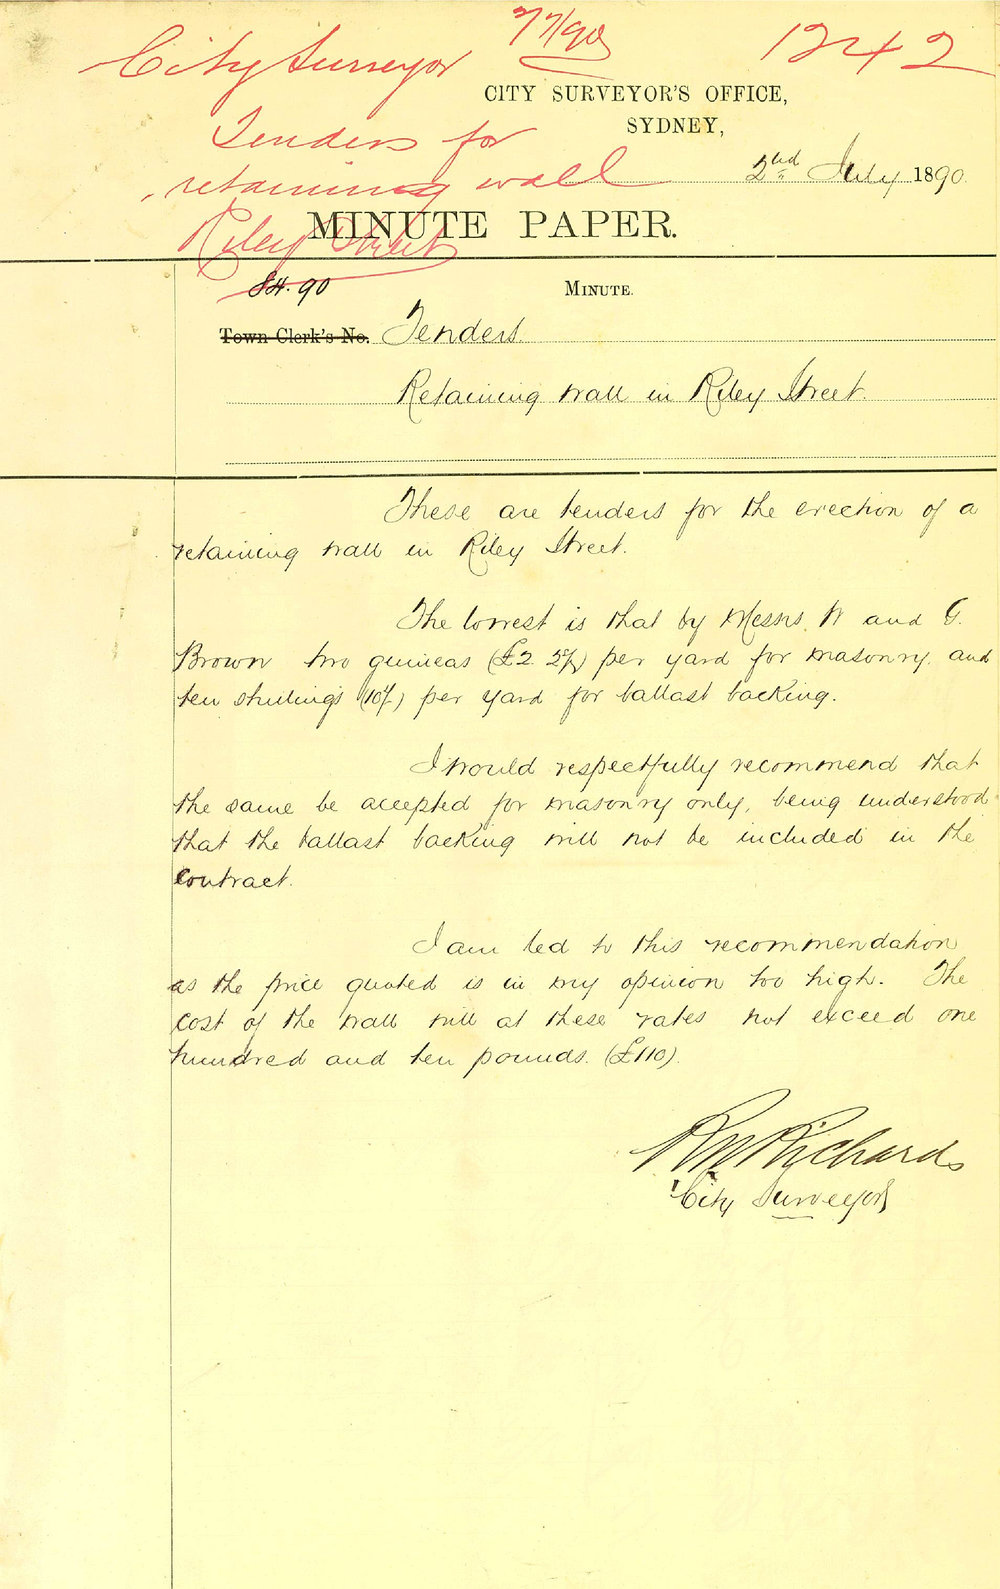 City Surveyor
77/90
1242
CITY SURVEYOR'S OFFICE,
SYDNEY,
Tenders for
retaining wall
2nd July 1890.
Riley Street
MINUTE PAPER.
84.90
MINUTE.
Town Clerk's No. Tenders.
Retaining wall in Riley Street.
These are tenders for the erection of a
retaining wall in Riley Street.
The lowest is that by Messrs. W and G.
Brown two guineas (£2. 2/) per yard for masonry. and
ten shillings (10/) per yard for ballast backing.
I would respectfully recommend that
the same be accepted for masonry only, being understood
that the ballast backing will not be included in the
Contract.
I am led to this recommendation
as the price quoted is in my opinion too high. The
Cost of the wall will at these rates not exceed one
hundred and ten pounds. (£110).
RW Richards
City Surveyor